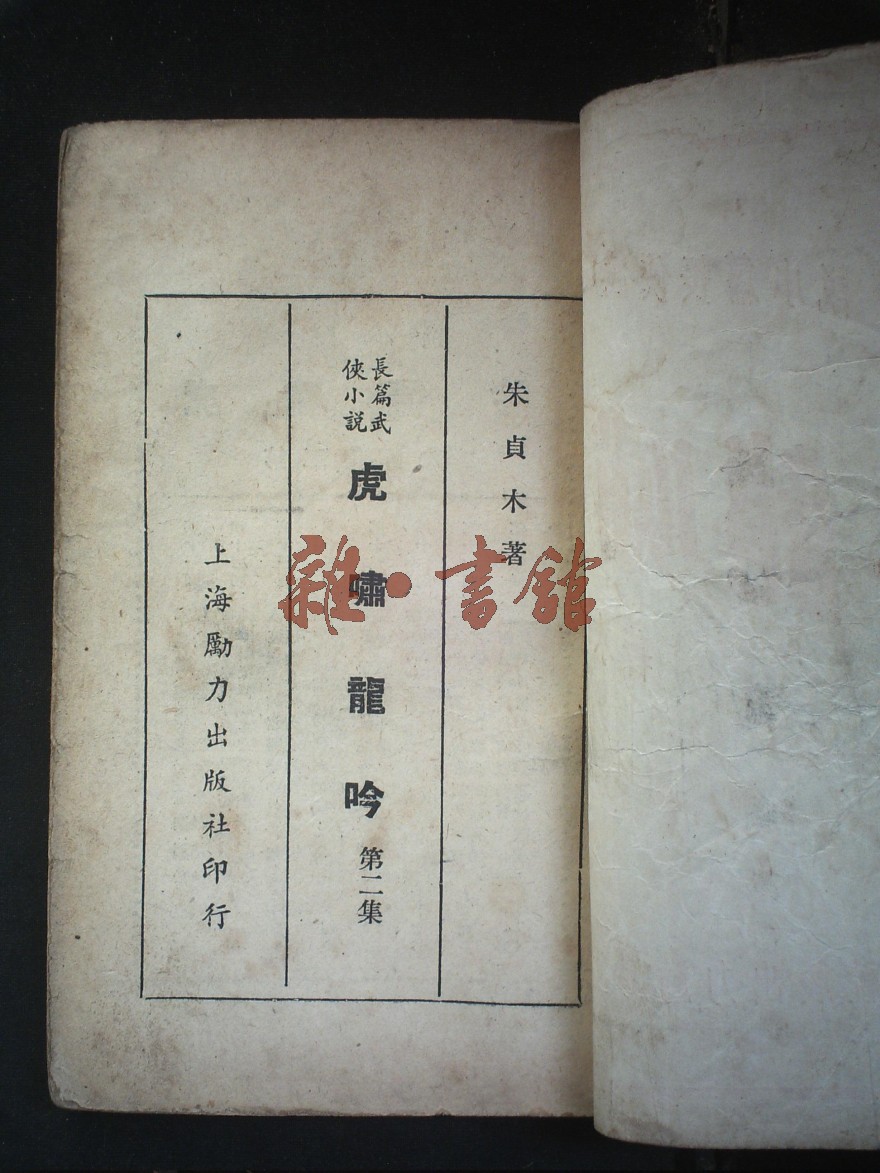 朱貞木著
長篇武
俠小說
虎嘯龍吟
第二集
上海勵力出版社印行
雜·書館